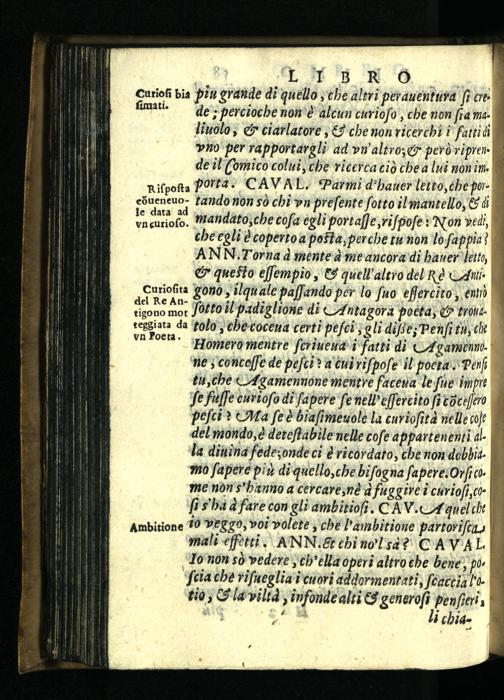 LIBRO
Curiosi bia
simati.
piu grande di quello, che altri perauentura si cre-
de; percioche non è alcun curioso, che non sia ma-
liuolo, & ciarlatore, & che non ricerchi i fatti di
vno per rapportargli ad vn'altro; & però ripren-
de il Comico colui, che ricerca ciò che a lui non im-
Risposta
cõueneuo-
le data ad
vn curioso.
porta. CAVAL. Parmi d'hauer letto, che por-
tando non sò chi vn presente sotto il mantello, & di
mandato, che cosa egli portasse, rispose: Non vedi,
che egli è coperto a posta, perche tu non lo sappia?
ANN. Torna à mente à me ancora di hauer letto,
& questo essempio, & quell'altro del Rè Anti-
Curiosita
del Re An-
tigono mot
teggiata da
vn Poeta.
gono, ilquale passando per lo suo essercito, entrò
sotto il padiglione di Antagora poeta, & troua-
tolo, che coceua certi pesci, gli disse; Pensi tu, che
Homero mentre scriueua i fatti di Agamenno-
ne, concesse de pesci? a cui rispose il poeta. Pensi
tu, che Agamennone mentre faceua le sue impre
se fusse curioso di sapere se nell'essercito si cõcessero
pesci? Ma se è biasimeuole la curiosità nelle cose
del mondo, è detestabile nelle cose appartenenti al-
la diuina fede; onde ci è ricordato, che non debbia-
mo sapere più di quello, che bisogna sapere. Or si co-
me non s'hanno a cercare, nè à fuggire i curiosi, co-
si s'hà à fare con gli ambitiosi. CAV. A quel che
Ambitione
io veggo, voi volete, che l'ambitione partorisca
mali effetti. ANN. Et chi no'l sà? CAVAL.
Io non sò vedere, ch'ella operi altro che bene, po-
scia che risueglia i cuori addormentati, scaccia l'o-
tio, & la viltà, infonde alti & generosi pensieri,
li chia-